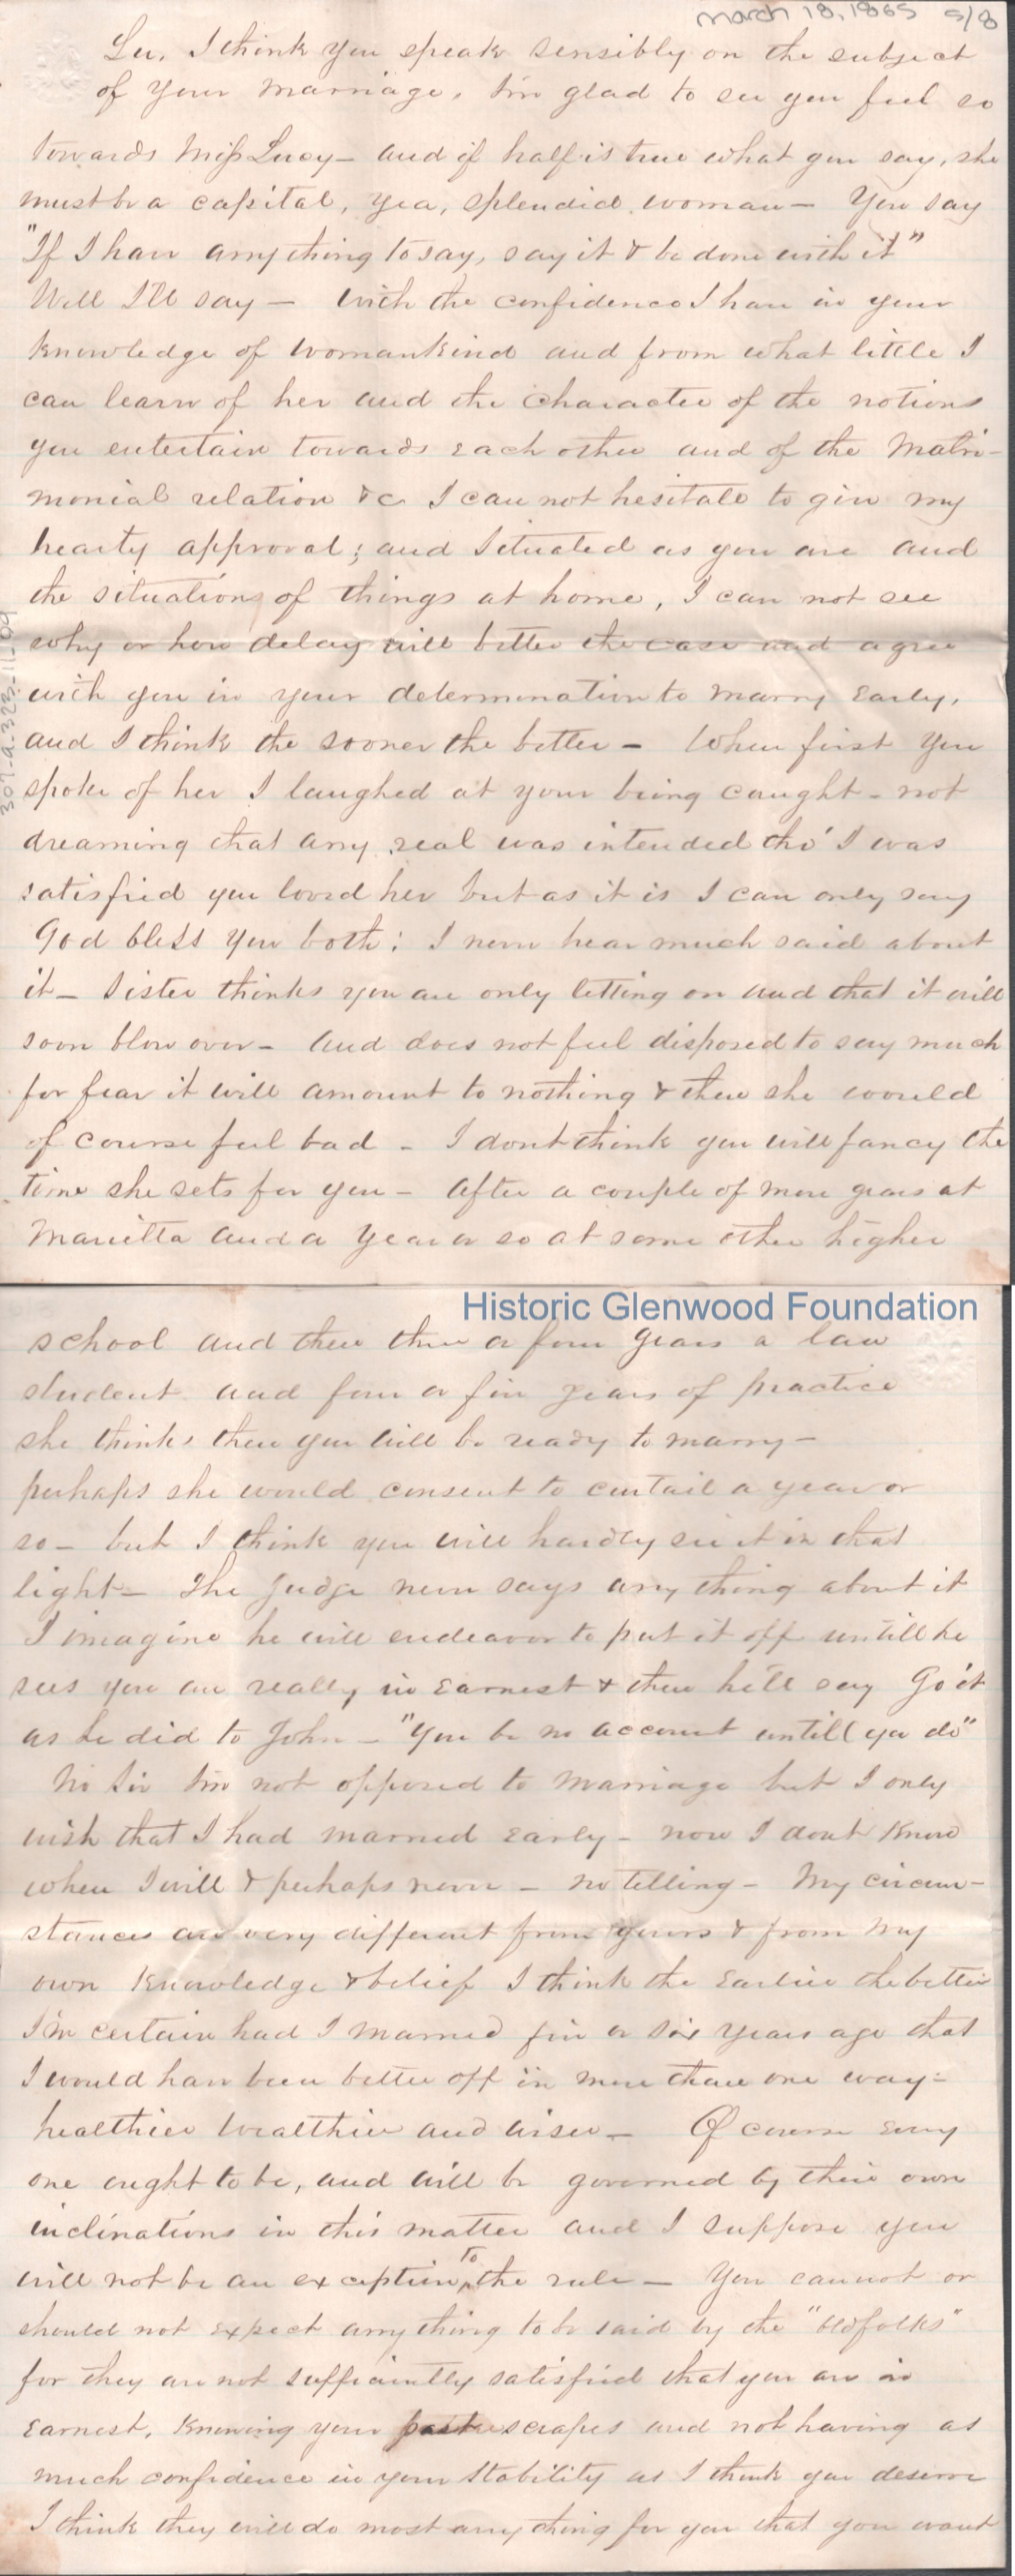 March 18, 1865 5/8
Lu, I think you speak sensibly on the subject
of your marriage, I'm glad to see you feel so
towards Miss Lucy - and if half is true what you say, she
must be a capital, yea, splendid woman - You say
"If I have any thing to say, say it & be done with it"
Well I'll say - with the confidence I have in your
knowledge of womankind and from what little I
can learn of her and the character of the notions
you entertain towards each other and of the Matri-
monial relation &c I can not hesitate to give my
hearty approval; and situated as you are and
the situations of things at home, I can not see
why or how delay will better the case and agree
with you in your determination to marry early,
and I think the sooner the better - When first you
spoke of her I laughed at your being caught - not
dreaming that any real was intended tho' I was
satisfied you loved her but as it is I can only say
God bless you both: I never hear much said about
it - Sister thinks you are only letting on and that it will
soon blow over - and does not feel disposed to say much
for fear it will amount to nothing & then she would
of course feel bad - I dont think you will fancy the
time she sets for you - After a couple of more years at
Marietta and a year or so at some other higher
307-a-323-11-09
Historic Glenwood Foundation
school and then three or four years a law
student and four or five years of practice
she thinks then you will be ready to marry -
perhaps she would consent to curtail a year or
so - but I think you will hardly see it in that
light - The Judge never says any thing about it
I imagine he will endeavor to put it off untill he
sees you are really in earnest & then he'll say Go it
as he did to John - "You be no account untill ya do"
No Sir I'm not opposed to marriage but I only
wish that I had married early - now I dont know
when I will & perhaps never - no telling - My circum-
stances are very different from yours & from my
own knowledge & belief I think the earlier the better
I'm certain had I married five or six years ago that
I would have been better off in more than one way -
healthier wealthier and wiser - Of course every
one ought to be, and will be governed by their own
inclinations in this matter and I suppose you
will not be an exception to the rule - You cannot or
should not expect any thing to be said by the "old folks"
for they are not sufficiently satisfied that you are in
earnest, knowing your past scrapes and not having as
much confidence in your stability as I think you deserve
I think they will do most any thing for you that you want